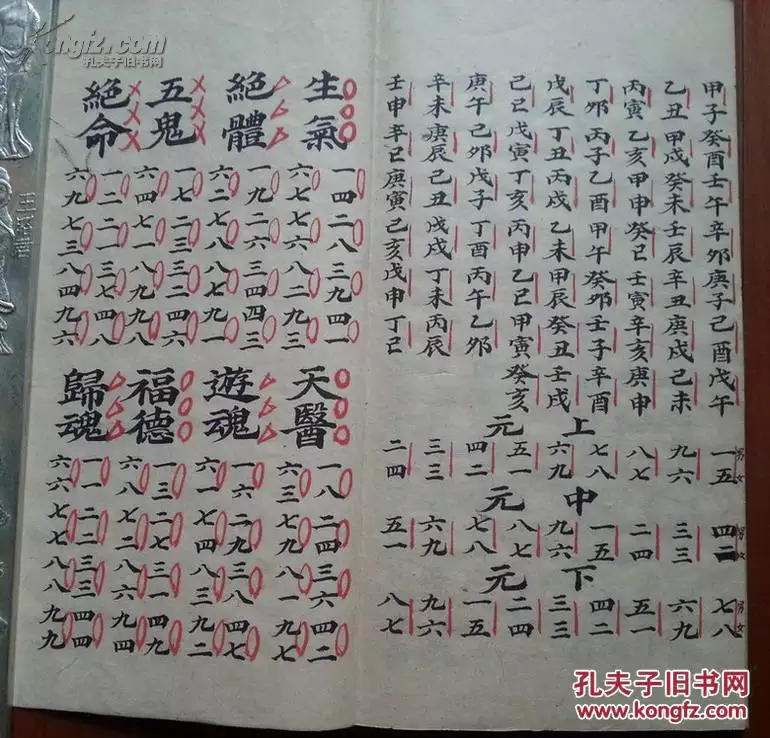 甲子癸酉壬午辛卯庚子己酉戊午
乙丑甲戌癸未壬辰辛丑庚戌己未
丙寅乙亥甲申癸巳壬寅辛亥庚申
丁卯丙子乙酉甲午癸卯壬子辛酉
戊辰丁丑丙戌乙未甲辰癸丑壬戌
己巳戊寅丁亥丙申乙巳甲寅癸亥
庚午己卯戊子丁酉丙午乙卯
辛未庚辰己丑戊戌丁未丙辰
壬申辛巳庚寅己亥戊申丁巳
上元
男女
一五 九六 八七 七八 六九 五一 四二 三三 二四
中元
男女
四二 三三 二四 一五 九六 八七 七八 六九 五一
下元
男女
七八 六九 五一 四二 三三 二四 一五 九六 八七
生氣
一四二八三九四一
六七七六八二九三
絕體
一九二六三四四三
六二七八八七九一
五鬼
一七二三三二四六
六四七一八九九八
絕命
一二二一三七四八
六九七三八四九六
天醫
一八二四三六四二
六三七九八一九七
遊魂
一六二九三八四七
六一七四八三九二
福德
一三二七三一四九
六八七二八六九四
歸魂
一一二二三三四四
六六七七八八九九
Kongfz.com
孔夫子旧书网
孔夫子旧书网
www.kongfz.com